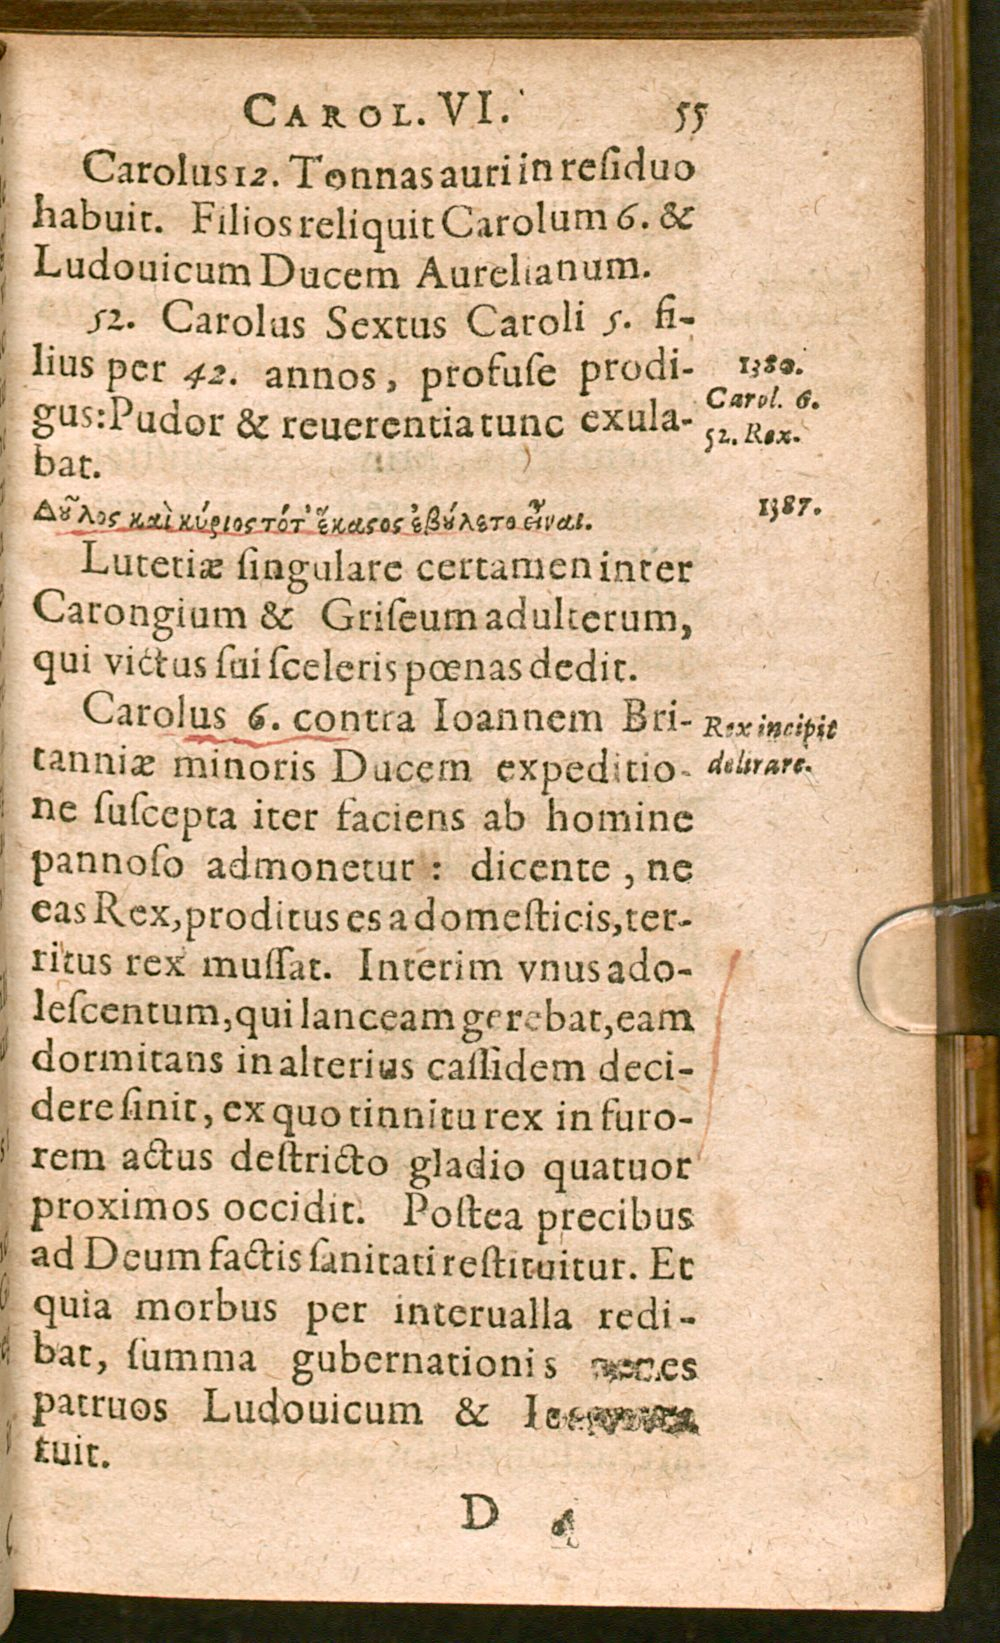 CAROL. VI. 55
Carolus 12. Tonnas auri in reſiduo
habuit. Filios reliquit Carolum 6. &
Ludouicum Ducem Aurelianum.
52. Carolus Sextus Caroli 5. fi-
lius per 42. annos, profuſe prodi-
gus: Pudor & reuerentia tunc exula-
bat.
1380.
Carol. 6.
52. Rex.
Δοῦλος καὶ κύριος τότ' ἕκαστος ἐβούλετο εἶναι.
1387.
Lutetiæ ſingulare certamen inter
Carongium & Griſeum adulterum,
qui victus ſui ſceleris pœnas dedit.
Carolus 6. contra Ioannem Bri-
tanniæ minoris Ducem expeditio-
ne ſuſcepta iter faciens ab homine
pannoſo admonetur: dicente, ne
eas Rex, proditus es a domeſticis, ter-
ritus rex muſſat. Interim vnus ado-
leſcentum, qui lanceam gerebat, eam
dormitans in alterius caſſidem deci-
dere ſinit, ex quo tinnitu rex in furo-
rem actus deſtricto gladio quatuor
proximos occidit. Poſtea precibus
ad Deum factis ſanitati reſtituitur. Et
quia morbus per interualla redi-
bat, ſumma gubernationis
patruos Ludouicum &
tuit.
Rex incipit
delirare.
D